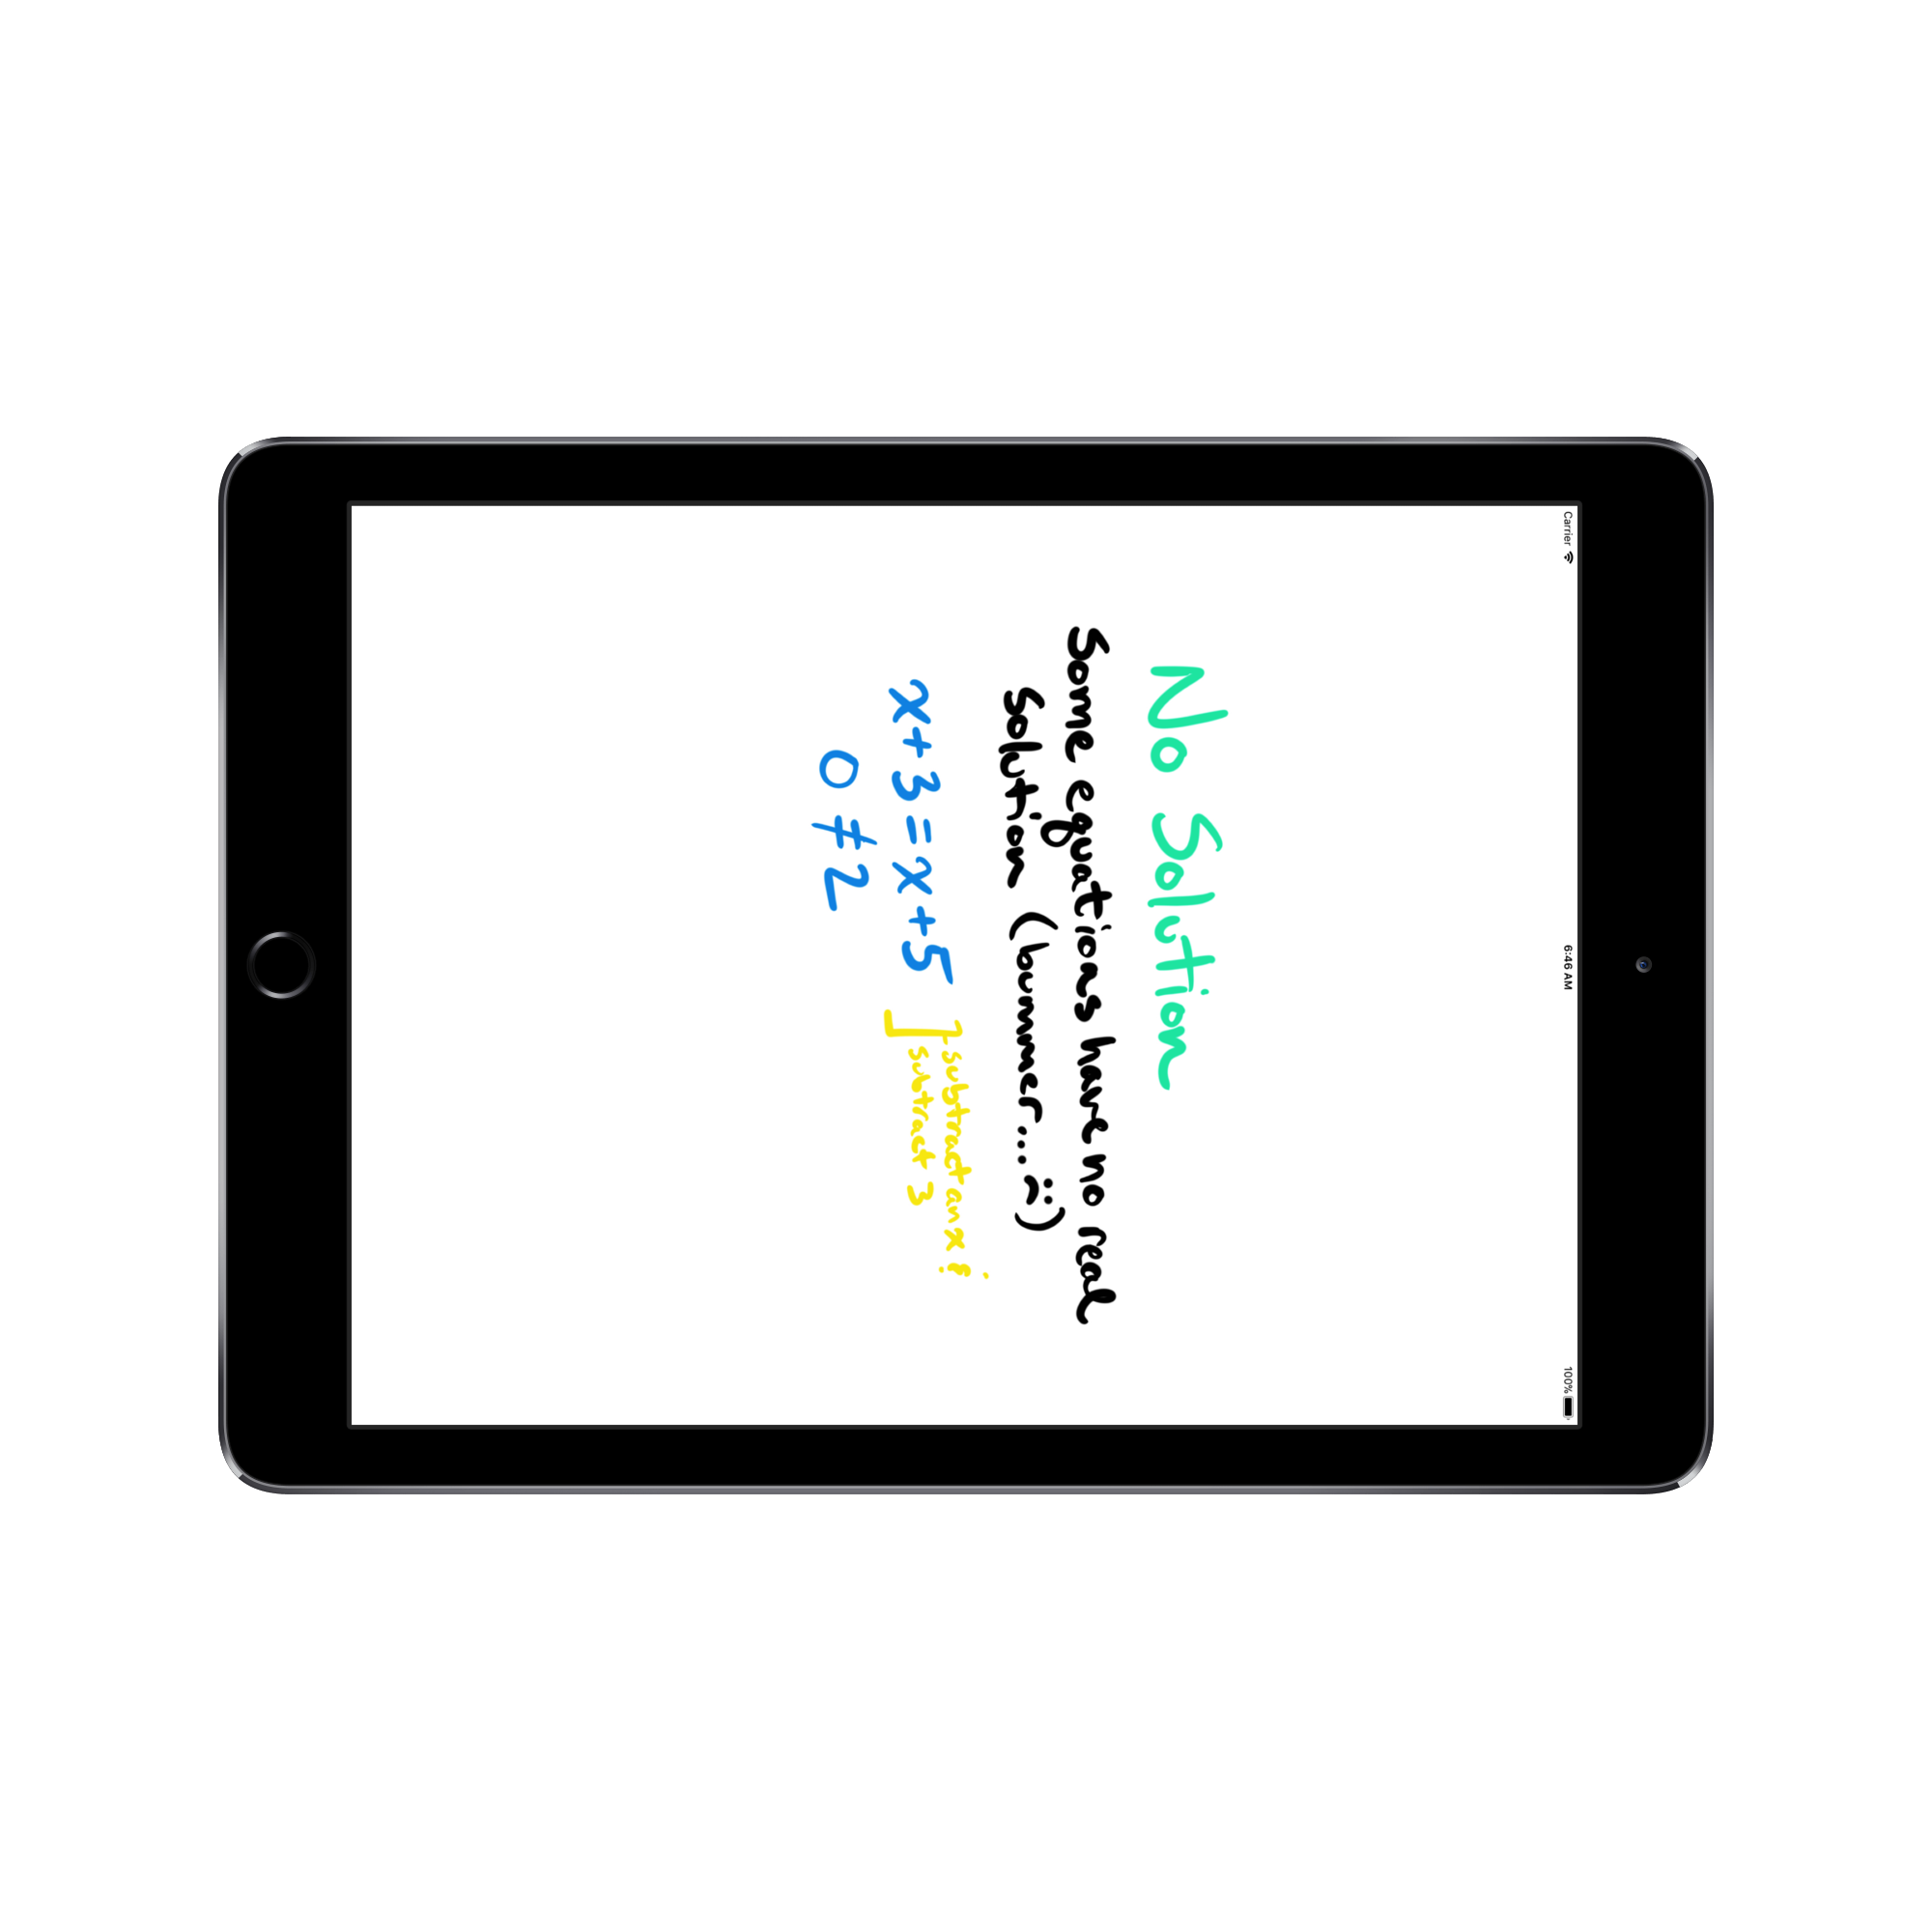 Carrier 6:46 AM 100%
No Solution
Some equations have no real
solution (bummer... :()
x+3=x+5 ] subtract an x &
subtract 3
0≠2